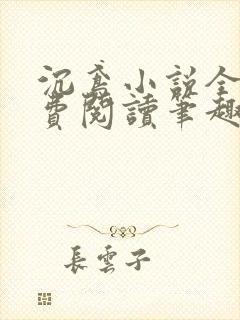 沉鸢小说全
費閱讀筆趣
長雲子